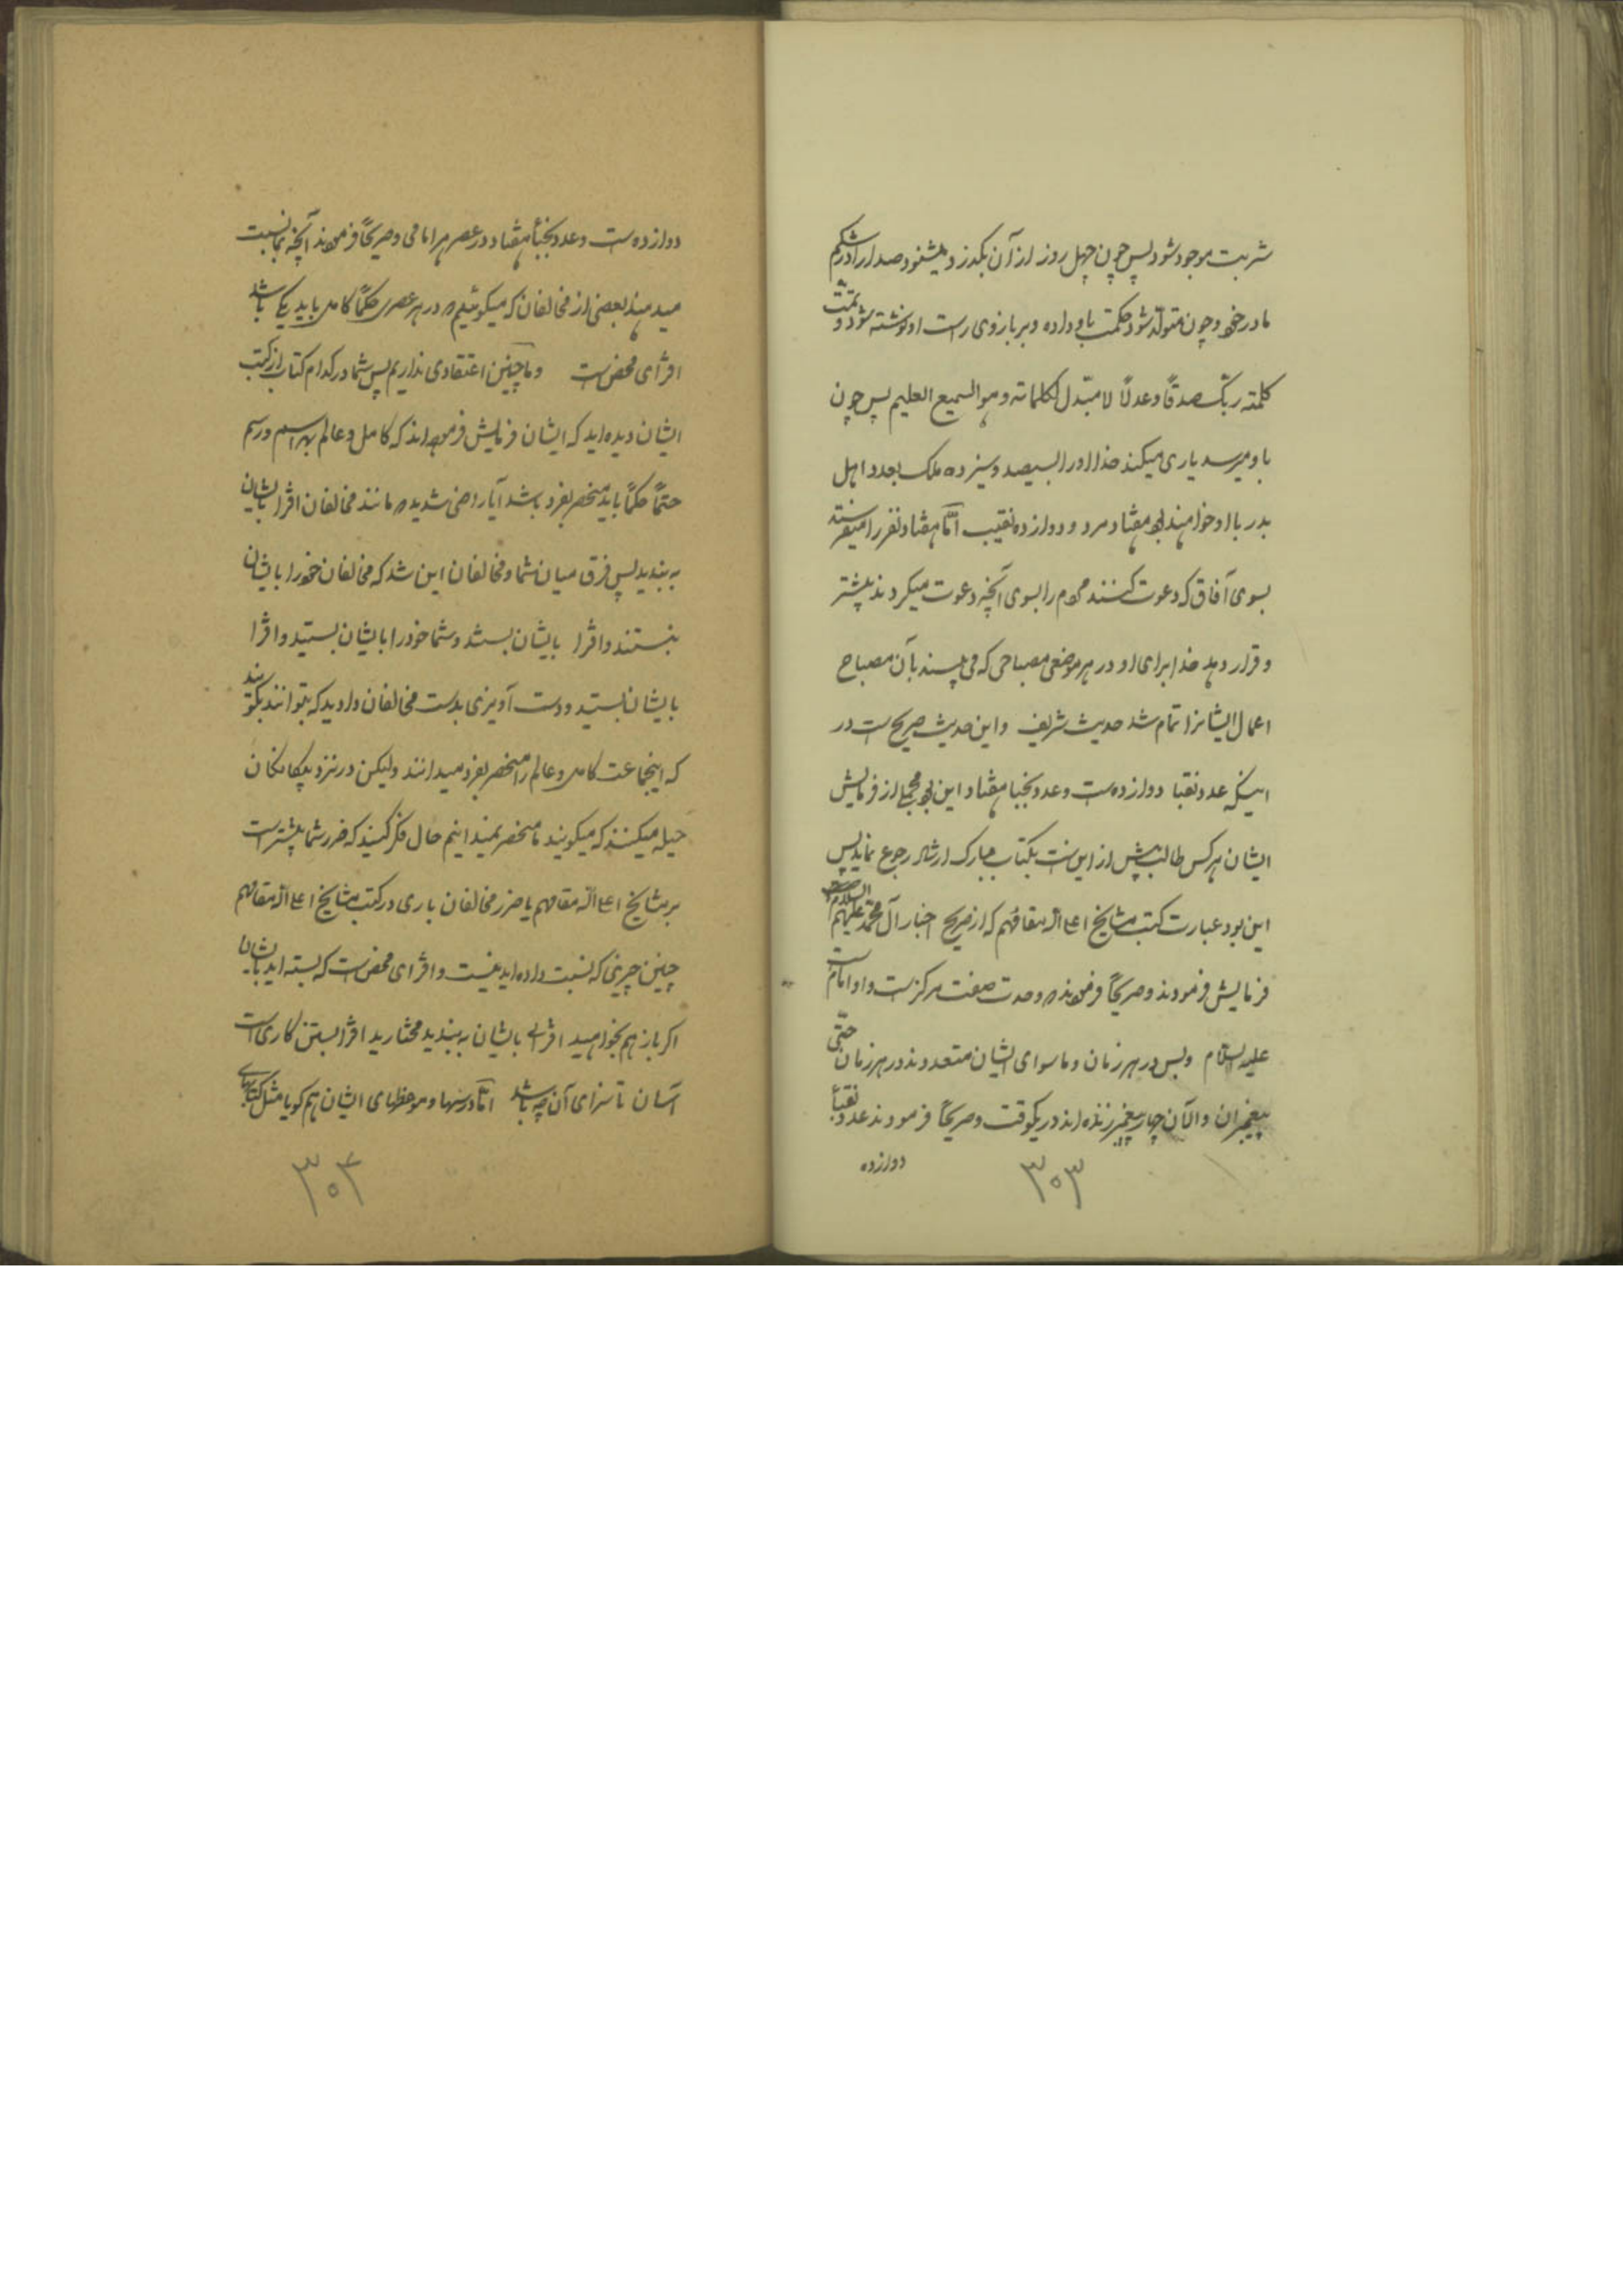 شربت موجود شود پس چون چهل روز از آن بگذرد میشنود صدا را در شکم
مادر خود و چون متولّد شود حکمت باو داده و بر بازوی راست او نوشته شود و تمّت
کلمته ربّک صدقاً و عدلاً لا مبّدل لکلماته و هو السمیع العلیم پس چون
باو میرسد یاری میکند خدا او را بسیصد و سیزده ملک بعدد اهل
بدر با او خواهند بود هفتاد مرد و دوازده نقیب امّا هفتاد نفر را میفرستد
بسوی آفاق که دعوت کنند مردم را بسوی آنچه دعوت میکردند پیشتر
و قرار دهد خدا برای او در هر موضعی مصباحی که می بیند بآن مصباح
اعمال ایشانرا تمام شد حدیث شریف و این حدیث صریح است در
اینکه عدد نقبا دوازده است و عدد نجبا هفتاد این بود مجملی از فرمایش
ایشان هرکس طالب بیش از این است بکتاب مبارک ارشاد رجوع نماید پس
این بود عبارت کتب مشایخ اعلی الله مقامهم که از صریح اخبار آل محمّد علیهم السلام
فرمایش فرمودند و صریحاً فرمودند که وحدت صفت مرکز است و او امام است
علیه السلام و بس در هر زمان و ما سوای ایشان متعددند در هر زمان حتّی
پیغمبران و الآن چهار پیغمبر زنده اند در یکوقت و صریحاً فرمودند عدد نقبأ
دوازده
۳۰۳
دوازده است و عدد نجبأ هفتاد در عصر هر امامی و صریحاً فرمودند آنچه بما نسبت
میدهند بعضی از مخالفان که میگوئیم که در هر عصر حکماً کامل باید یکی باشد
افترای محض است و ما چنین اعتقادی نداریم پس شما در کدام کتاب از کتب
ایشان دیده اید که ایشان فرمایش فرموده اند که کامل و عالم بهر اسم و رسم
حتماً حکماً باید منحصر بفرد باشد آیا راضی شدید که مانند مخالفان افترا بایشان
به بندید پس فرق میان شما و مخالفان این شد که مخالفان خود را بایشان
نبستند و افترا بایشان بستند و شما خود را بایشان بستید و افترا
بایشان بستید و دست آویزی بدست مخالفان دادید که بتوانند بگویند
که اینجماعت کامل و عالم را منحصر بفرد میدانند ولیکن در نزد بیگانگان
حیله میکنند که میگویند ما منحصر نمیدانیم حال فکر کنید که ضرر شما بیشتر است
بر مشایخ اعلی الله مقامهم یا ضرر مخالفان باری در کتب مشایخ اعلی الله مقامهم
چنین چیزی که نسبت داده اید نیست و افترای محض است که بسته اید بایشان
اگر باز هم بخواهید افترائی بایشان به بندید مختارید افترا بستن کاری است
آسان تا سزای آن چه باشد امّا درسها و موعظهای ایشان هم گویا مثل کتابهای
۳۰۴